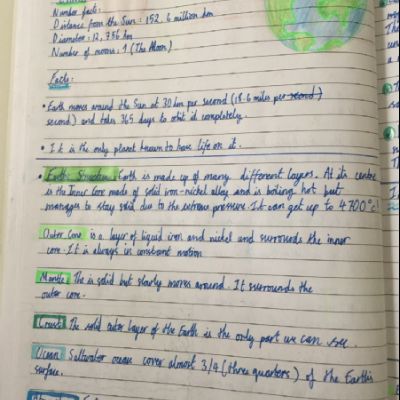 Number facts:
Distance from the Sun: 152.6 million km
Diameter: 12,756 km
Number of moons: 1 (The Moon)
Facts:
• Earth moves around the Sun at 30 km per second (18.6 miles per second)
second) and takes 365 days to orbit it completely.
• It is the only planet known to have life on it.
• Earth's Structure: Earth is made up of many different layers. At its centre
is the Inner Core made of solid iron-nickel alloy and is boiling hot but
manages to stay solid due to the extreme pressure. It can get up to 4700°c!
Outer Core is a layer of liquid iron and nickel and surrounds the inner
core. It is always in constant motion
Mantle: The is solid but slowly moves around. It surrounds the
outer core.
Crust: The solid outer layer of the Earth is the only part we can see.
Ocean: Saltwater ocean cover almost 3/4 (three quarters) of the Earth's
surface.